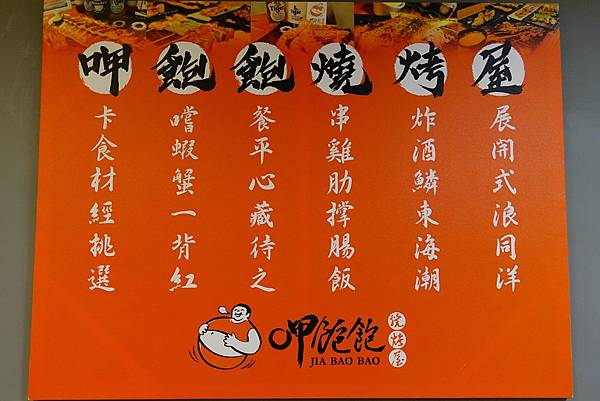 呷飽飽燒烤屋
卡食材經挑選
嚐蝦蟹一背紅
餐平心藏待之
串雞肋撐腸飯
炸酒鱗東海潮
展開式浪同洋
呷飽飽
JIA BAO BAO
燒烤屋
Tiger